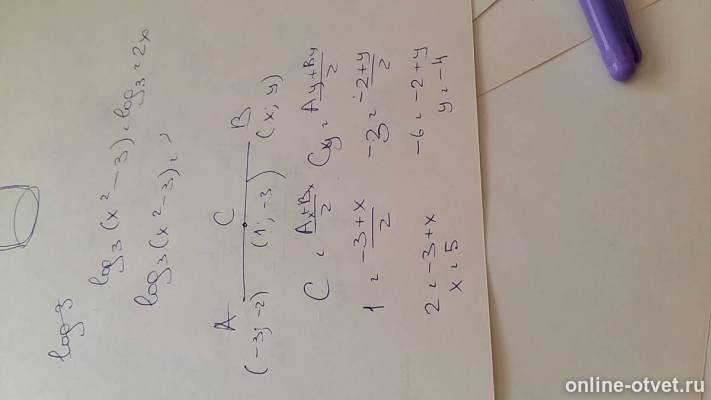 log 3
log₃(x² – 3) = log₃ = 2x
log₃(x² – 3) =
A C B
(–3; –2) (1; –3) (x; y)
C = Ax+Bx/2 Cy = Ay+By/2
1 = –3+x/2 –3 = –2+y/2
2 = –3+x –6 = –2+y
x = 5 y = –4
online-otvet.ru